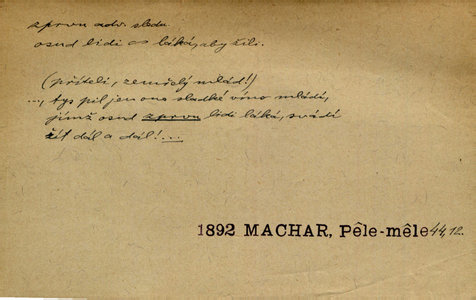 zprvu adv. sledu
osud lidi os láká, aby žili.
(příteli, zemřelý mlád!)
..., tys pil jen ono sladké víno mládí,
jímž osud zprvu lidi láká, svádí
žít dál a dál!...
1892 MACHAR, Pêle-mêle 44,12.